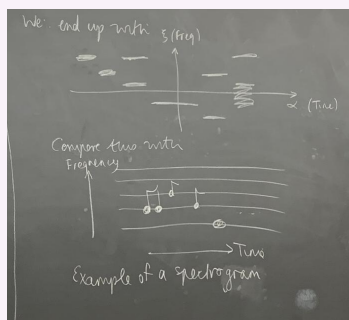 We end up with ξ (Freq)
α (Time)
Compare this with
Frequency
Time
Example of a spectrogram